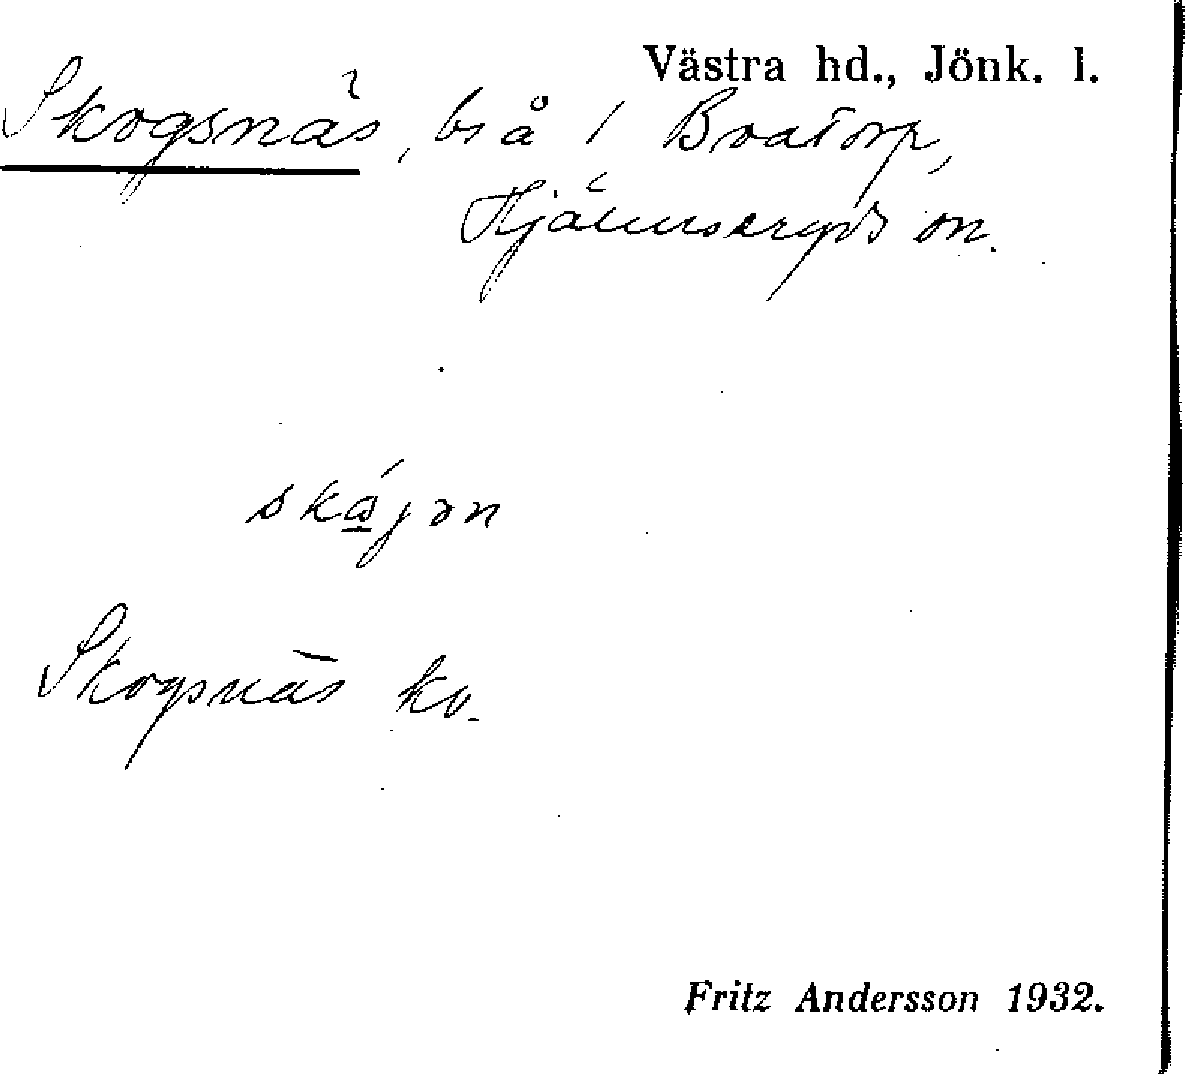 Västra hd., Jönk. l.
Skogsnäs, brå i Boatorp,
Hjälmseryds sn.
skójən
Skogsnäs ko.
Fritz Andersson 1932.